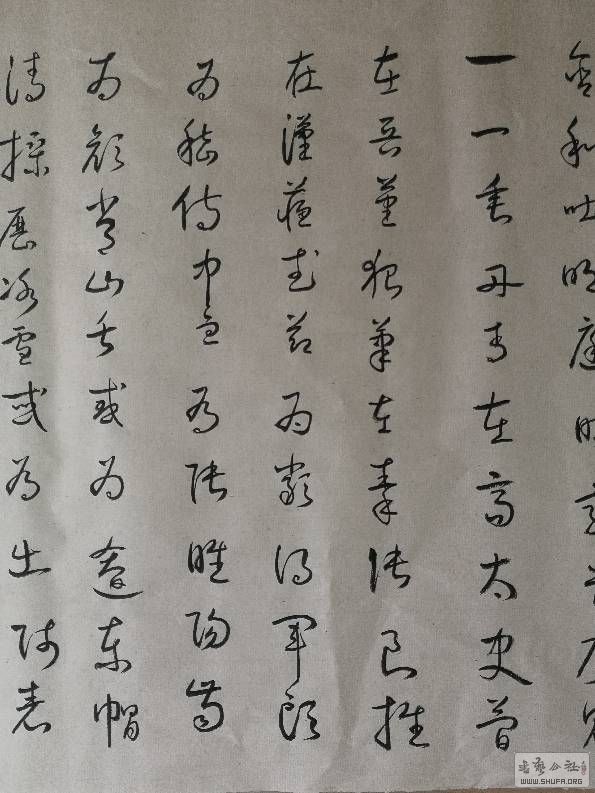 含和吐明庭時窮節乃見
一一垂丹青在齊太史簡
在晉董狐筆在秦張良椎
在漢蘇武節為嚴將軍頭
為嵇侍中血為張睢陽齒
為顏常山舌或為遼東帽
清操厲冰雪或為出師表
书艺公社
WWW.SHUFA.ORG